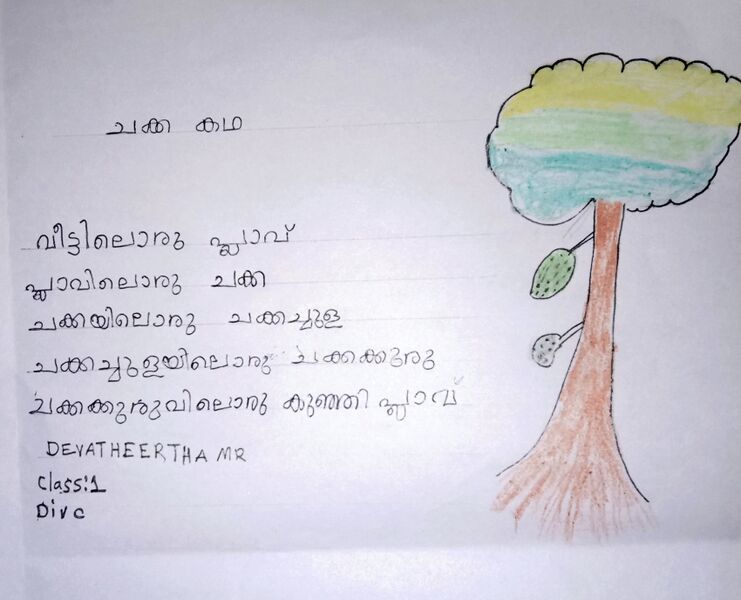 ചക്ക കഥ
വീട്ടിലൊരു പ്ലാവ്
പ്ലാവിലൊരു ചക്ക
ചക്കയിലൊരു ചക്കച്ചുള
ചക്കച്ചുളയിലൊരു ചക്കക്കുരു
ചക്കക്കുരുവിലൊരു കുഞ്ഞി പ്ലാവ്
DEVATHEERTHA MR
Class:1
Div c